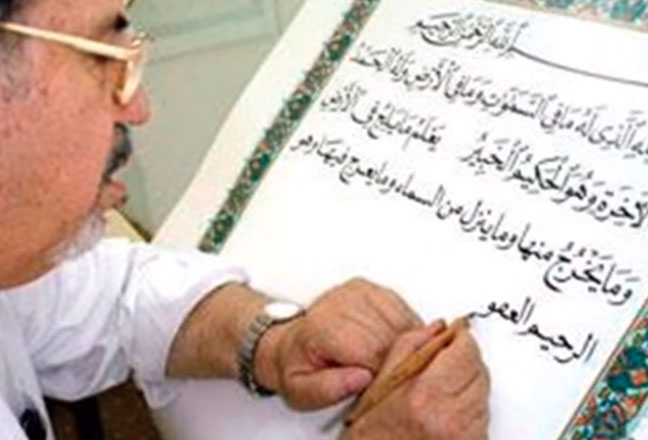 الله الرحمن الرحيم
الذي له ما في السموات وما في الأرض وله الحمد
الآخرة وهو الحكيم الخبير يعلم ما يلج في الأرض
وما يخرج منها وما ينزل من السماء وما يعرج فيها وهو
الرحيم العفو